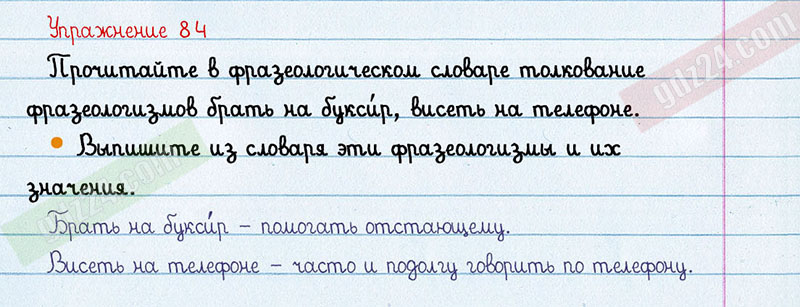 Упражнение 84
Прочитайте в фразеологическом словаре толкование
фразеологизмов брать на букси́р, висеть на телефоне.
• Выпишите из словаря эти фразеологизмы и их
значения.
Брать на букси́р – помогать отстающему.
Висеть на телефоне – часто и подолгу говорить по телефону.
gdz24.com
gdz24.com